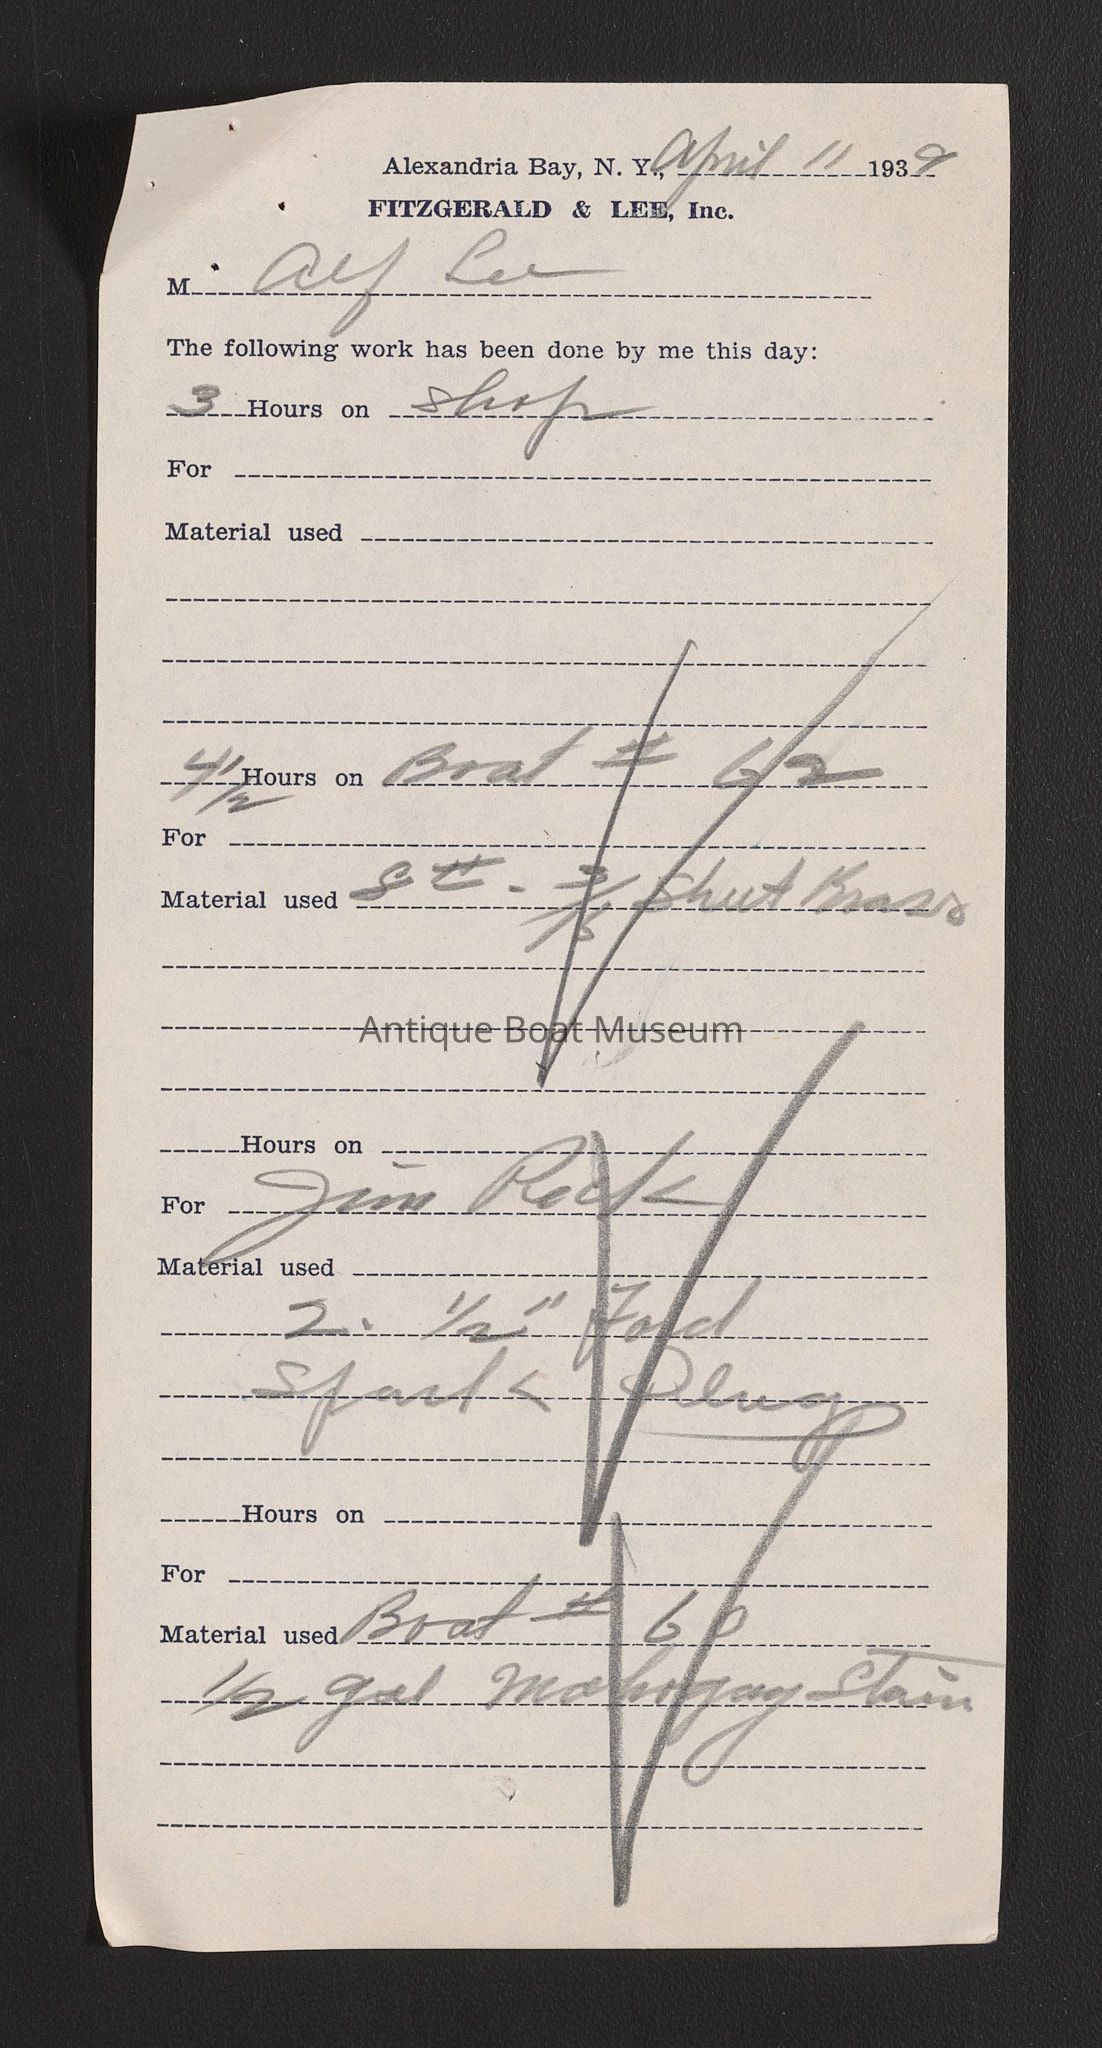 Alexandria Bay, N. Y., April 11 1939
FITZGERALD & LEE, Inc.
M Alf Lee
The following work has been done by me this day:
3 Hours on shop
For
Material used
4 1/2 Hours on Boat # 62
For
Material used 8 # - 3/16 Sheet Brass
Antique Boat Museum
Hours on
For Jim Rock
Material used
2. 1/2" Ford
Spark Plug
Hours on
For
Material used Boat # 60
1/2 gal Mahogay Stain